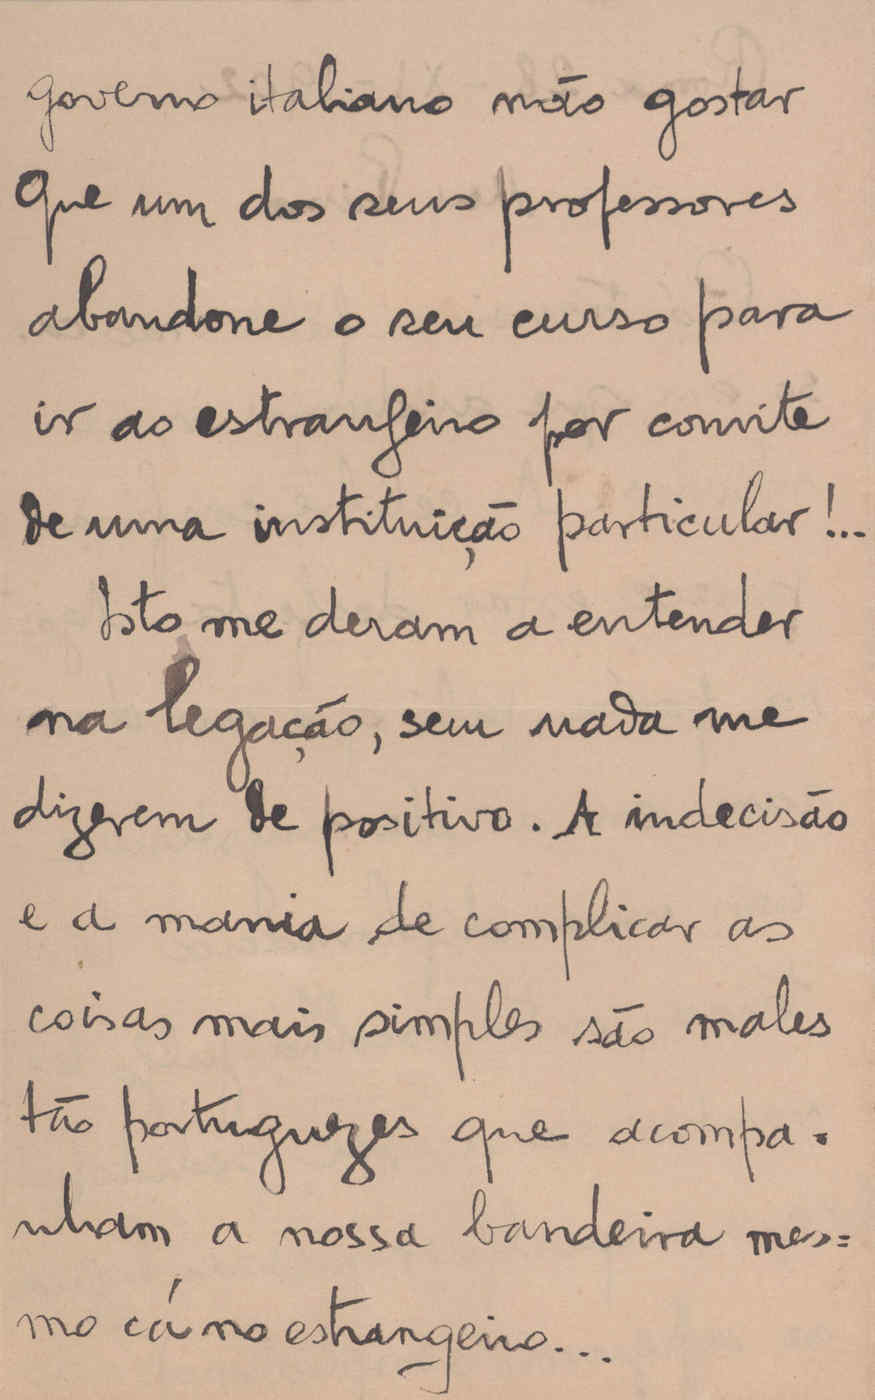 governo italiano não gostar
que um dos seus professores
abandone o seu curso para
ir ao estranjeiro por convite
de uma instituição particular!...
Isto me deram a entender
na legação, sem nada me
dizerem de positivo. A indecisão
e a mania de complicar as
coisas mais simples são males
tão portuguezes que acompa-
nham a nossa bandeira mes=
mo cá no estrangeiro...